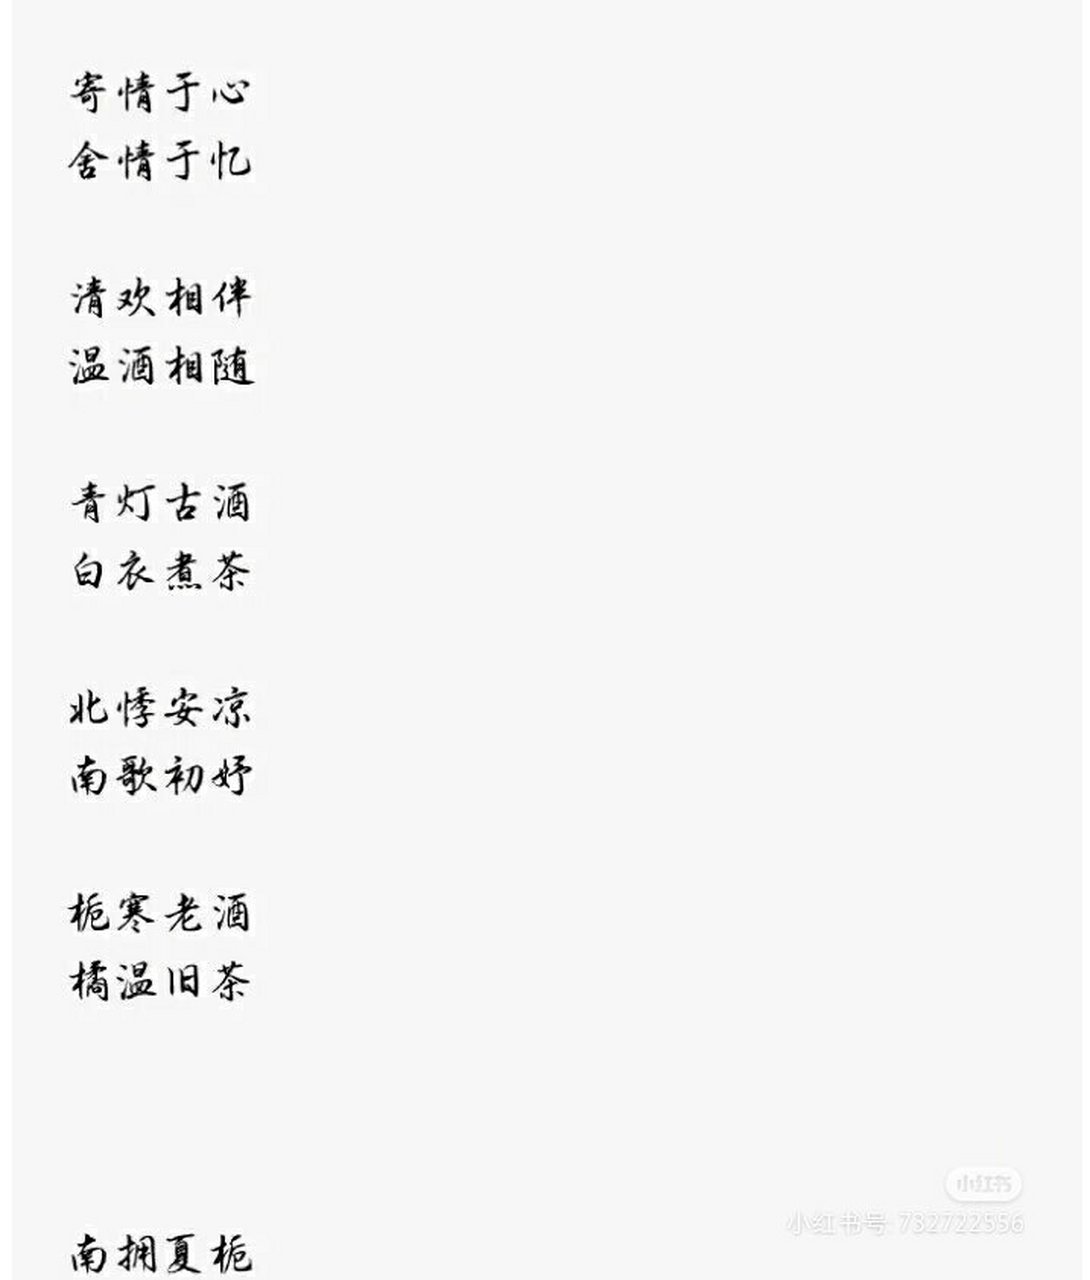 寄情于心
舍情于忆
清欢相伴
温酒相随
青灯古酒
白衣煮茶
北悸安凉
南歌初妤
栀寒老酒
橘温旧茶
小红书
小红书号: 732722556
南拥夏栀